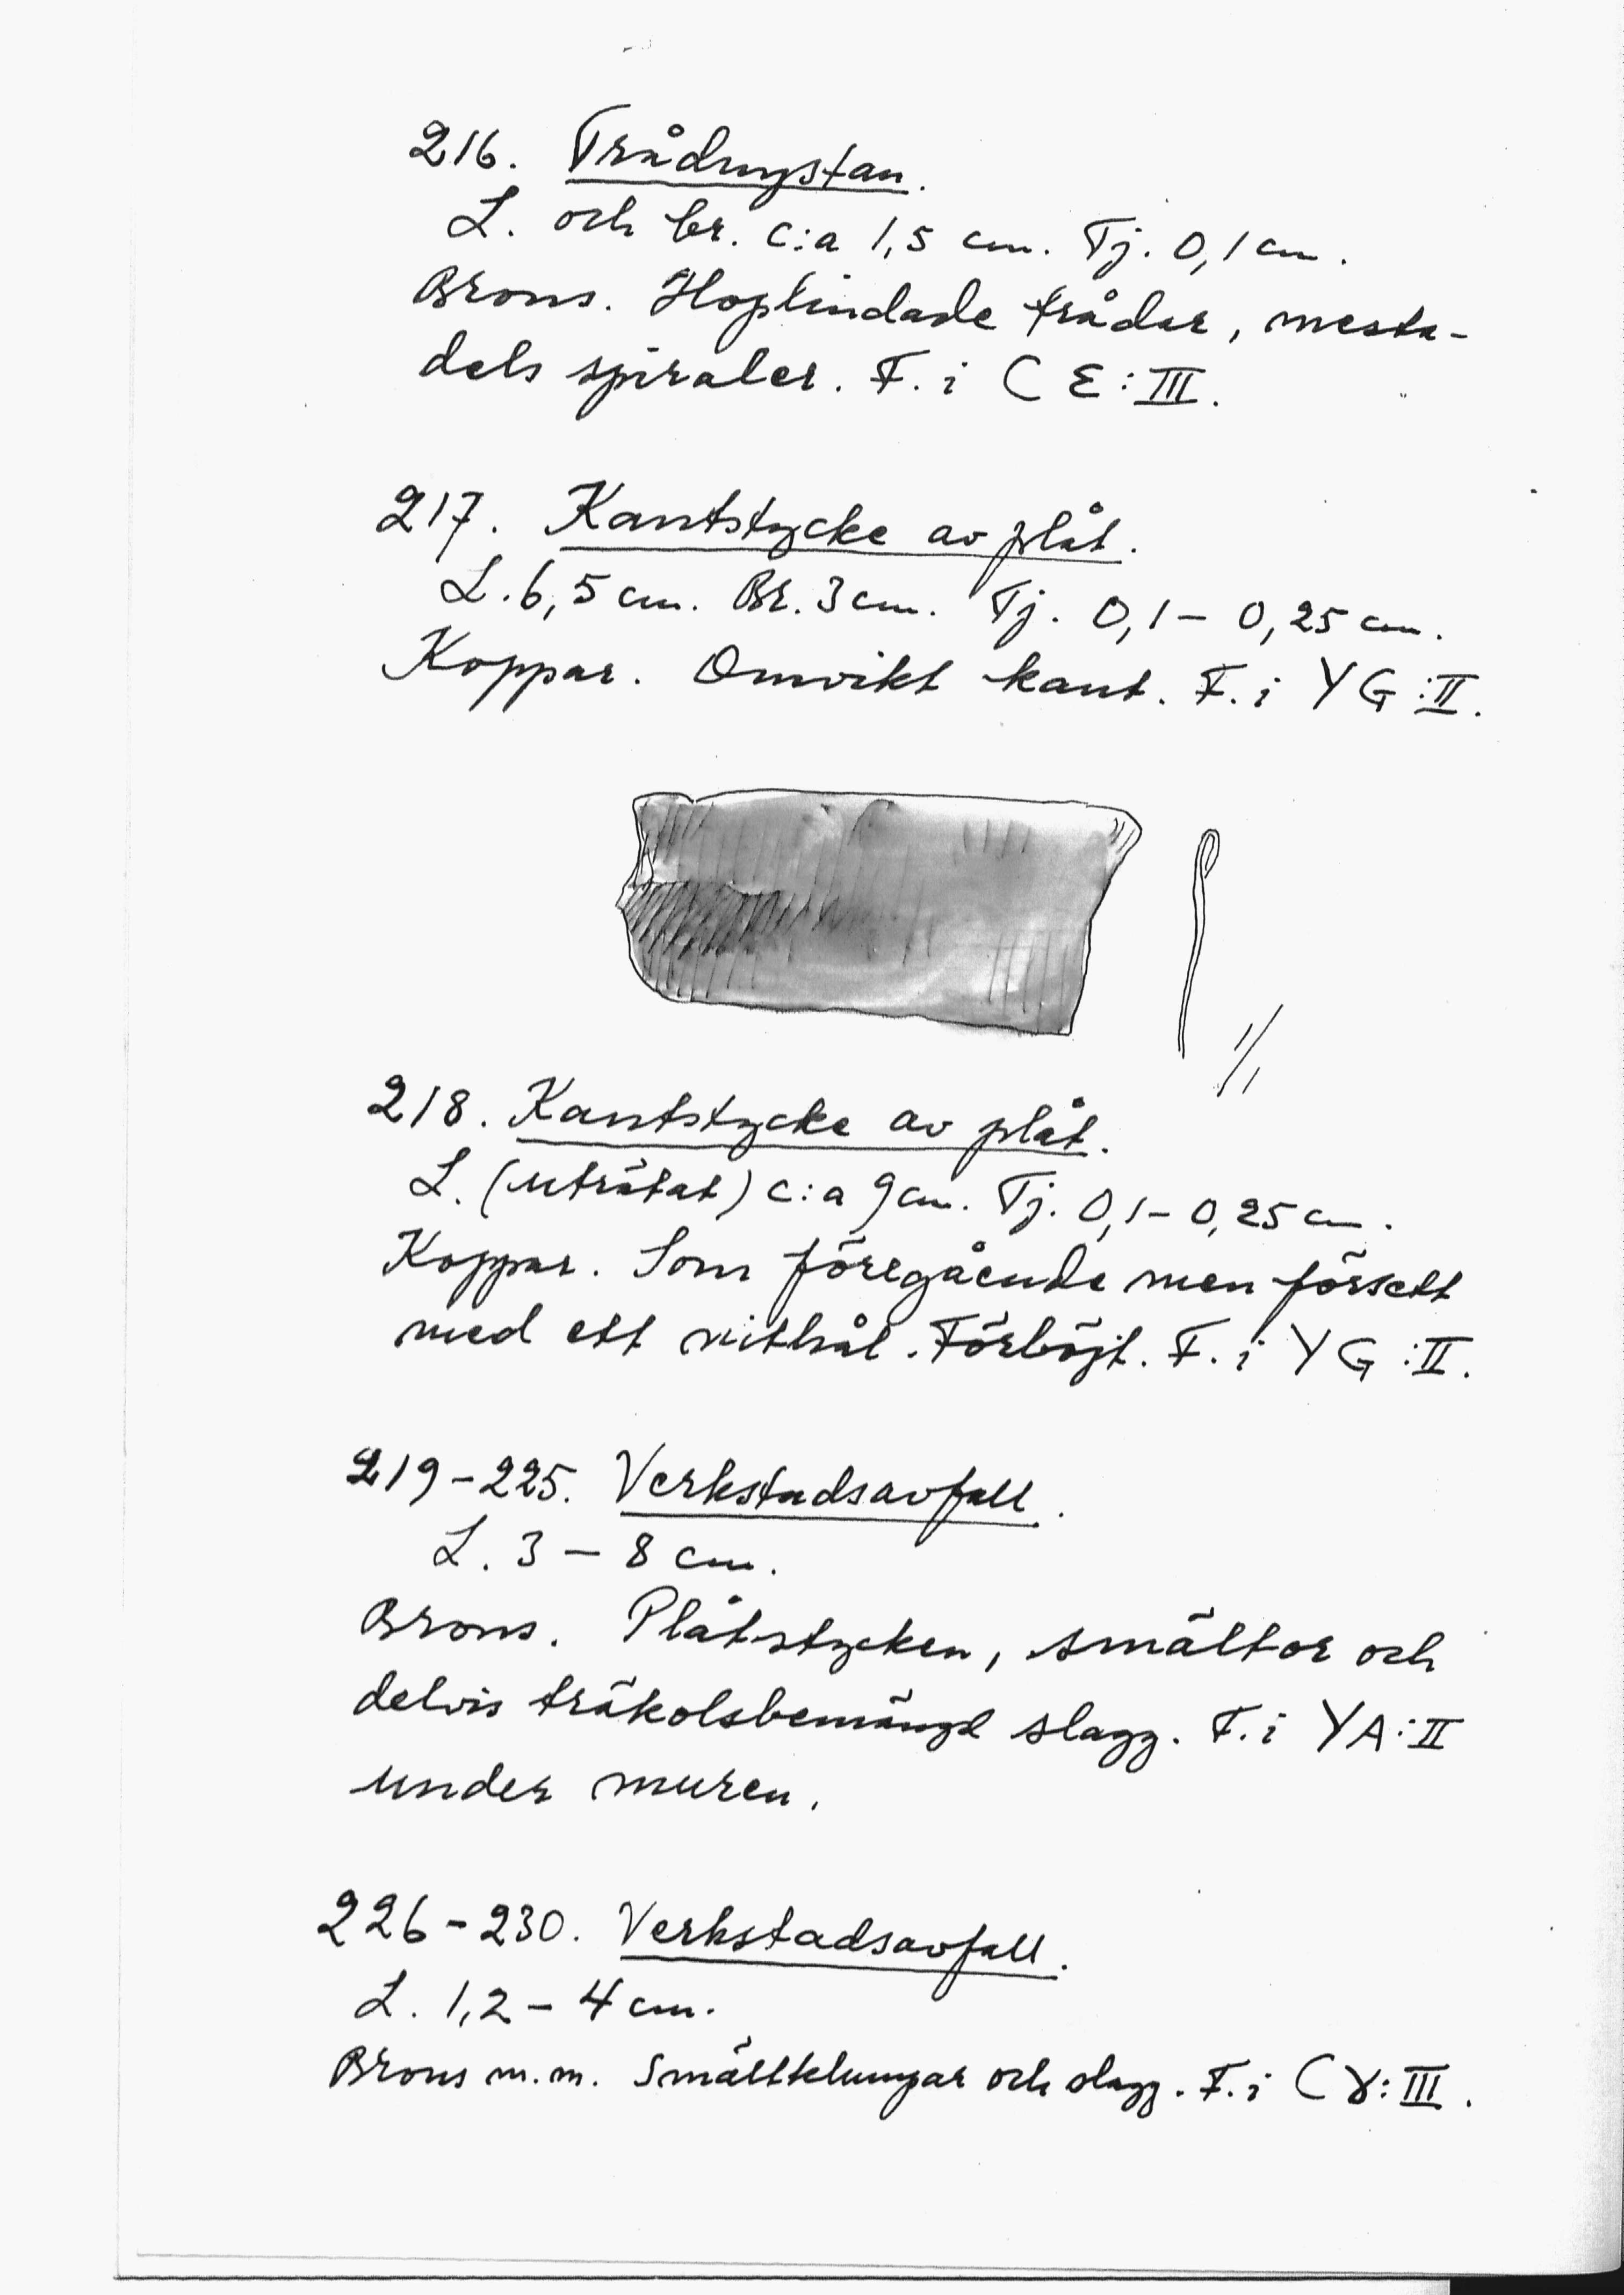 216. Trådnystan.
L. och br. c:a 1,5 cm. Tj. 0,1 cm.
Brons. Hoplindade trådar, mesta-
dels spiraler. F. i C ε:III.
217. Kantstycke av plåt.
L. 6,5 cm. Br. 3 cm. Tj. 0,1 – 0,25 cm.
Koppar. Omvikt kant. F. i Y G:II.
1/1
218. Kantstycke av plåt.
L. (uträtat) c:a 9 cm. Tj. 0,1 – 0,25 cm.
Koppar. Som föregående men försett
med ett nithål. Förböjt. F. i Y G:II.
219-225. Verkstadsavfall.
L. 3 – 8 cm.
Brons. Plåtstycken, smältor och
delvis träkolsbemängd slagg. F. i YA:II
under muren.
226-230. Verkstadsavfall.
L. 1,2 – 4 cm.
Brons m.m. Smältklumpar och slagg. F. i C γ:III.